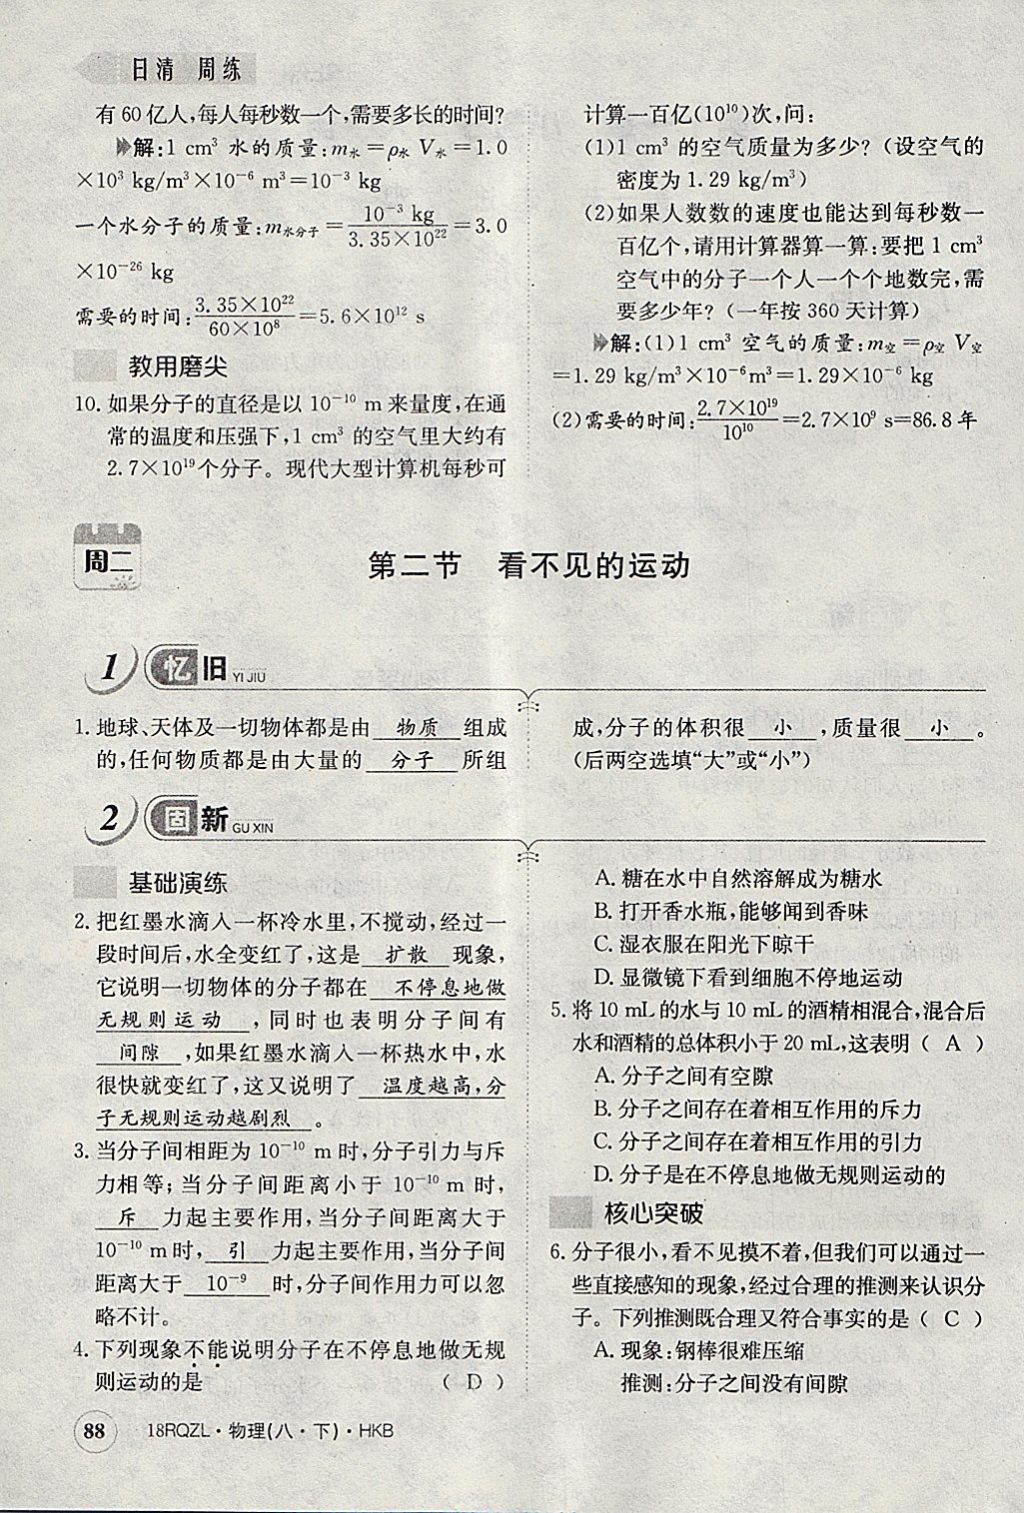 日清 周练
有60亿人,每人每秒数一个,需要多长的时间?
解:1 cm³ 水的质量:m水=ρ水 V水=1.0
×10³ kg/m³×10⁻⁶ m³=10⁻³ kg
一个水分子的质量:m水分子=10⁻³ kg/3.35×10²²=3.0
×10⁻²⁶ kg
需要的时间:3.35×10²²/60×10⁸=5.6×10¹² s
教用磨尖
10. 如果分子的直径是以10⁻¹⁰ m来量度,在通
常的温度和压强下,1 cm³ 的空气里大约有
2.7×10¹⁹个分子。现代大型计算机每秒可
计算一百亿(10¹⁰)次,问:
(1)1 cm³ 的空气质量为多少?(设空气的
密度为1.29 kg/m³)
(2)如果人数数的速度也能达到每秒数一
百亿个,请用计算器算一算:要把1 cm³
空气中的分子一个人一个个地数完,需
要多少年?(一年按360天计算)
解:(1)1 cm³ 空气的质量:m空=ρ空 V空
=1.29 kg/m³×10⁻⁶m³=1.29×10⁻⁶ kg
(2)需要的时间:2.7×10¹⁹/10¹⁰=2.7×10⁹ s=86.8年
周二
第二节 看不见的运动
1 忆旧 YI JIU
1. 地球、天体及一切物体都是由 物质 组成
的,任何物质都是由大量的 分子 所组
成,分子的体积很 小 ,质量很 小 。
(后两空选填“大”或“小”)
2 固新 GU XIN
基础演练
2. 把红墨水滴入一杯冷水里,不搅动,经过一
段时间后,水全变红了,这是 扩散 现象,
它说明一切物体的分子都在 不停息地做
无规则运动 ,同时也表明分子间有
间隙 ,如果红墨水滴入一杯热水中,水
很快就变红了,这又说明了 温度越高,分
子无规则运动越剧烈 。
3. 当分子间相距为10⁻¹⁰ m时,分子引力与斥
力相等;当分子间距离小于10⁻¹⁰ m时,
斥 力起主要作用,当分子间距离大于
10⁻¹⁰ m时, 引 力起主要作用,当分子间
距离大于 10⁻⁹ 时,分子间作用力可以忽
略不计。
4. 下列现象不能说明分子在不停息地做无规
则运动的是 ( D )
A. 糖在水中自然溶解成为糖水
B. 打开香水瓶,能够闻到香味
C. 湿衣服在阳光下晾干
D. 显微镜下看到细胞不停地运动
5. 将10 mL的水与10 mL的酒精相混合,混合后
水和酒精的总体积小于20 mL,这表明( A )
A. 分子之间有空隙
B. 分子之间存在着相互作用的斥力
C. 分子之间存在着相互作用的引力
D. 分子是在不停息地做无规则运动的
核心突破
6. 分子很小,看不见摸不着,但我们可以通过一
些直接感知的现象,经过合理的推测来认识分
子。下列推测既合理又符合事实的是( C )
A. 现象:钢棒很难压缩
推测:分子之间没有间隙
88 18RQZL·物理(八·下)·HKB